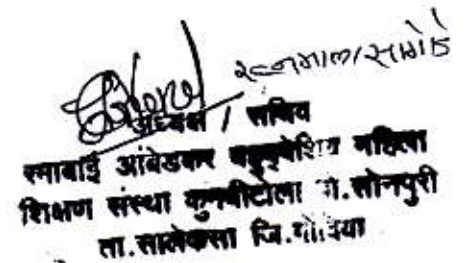 अध्यक्ष / सचिव
रमाबाई आंबेडकर बहुउद्देशिय महिला
शिक्षण संस्था कुनबीटोला पो.सोनपुरी
ता.सालेकसा जि.गोंदिया